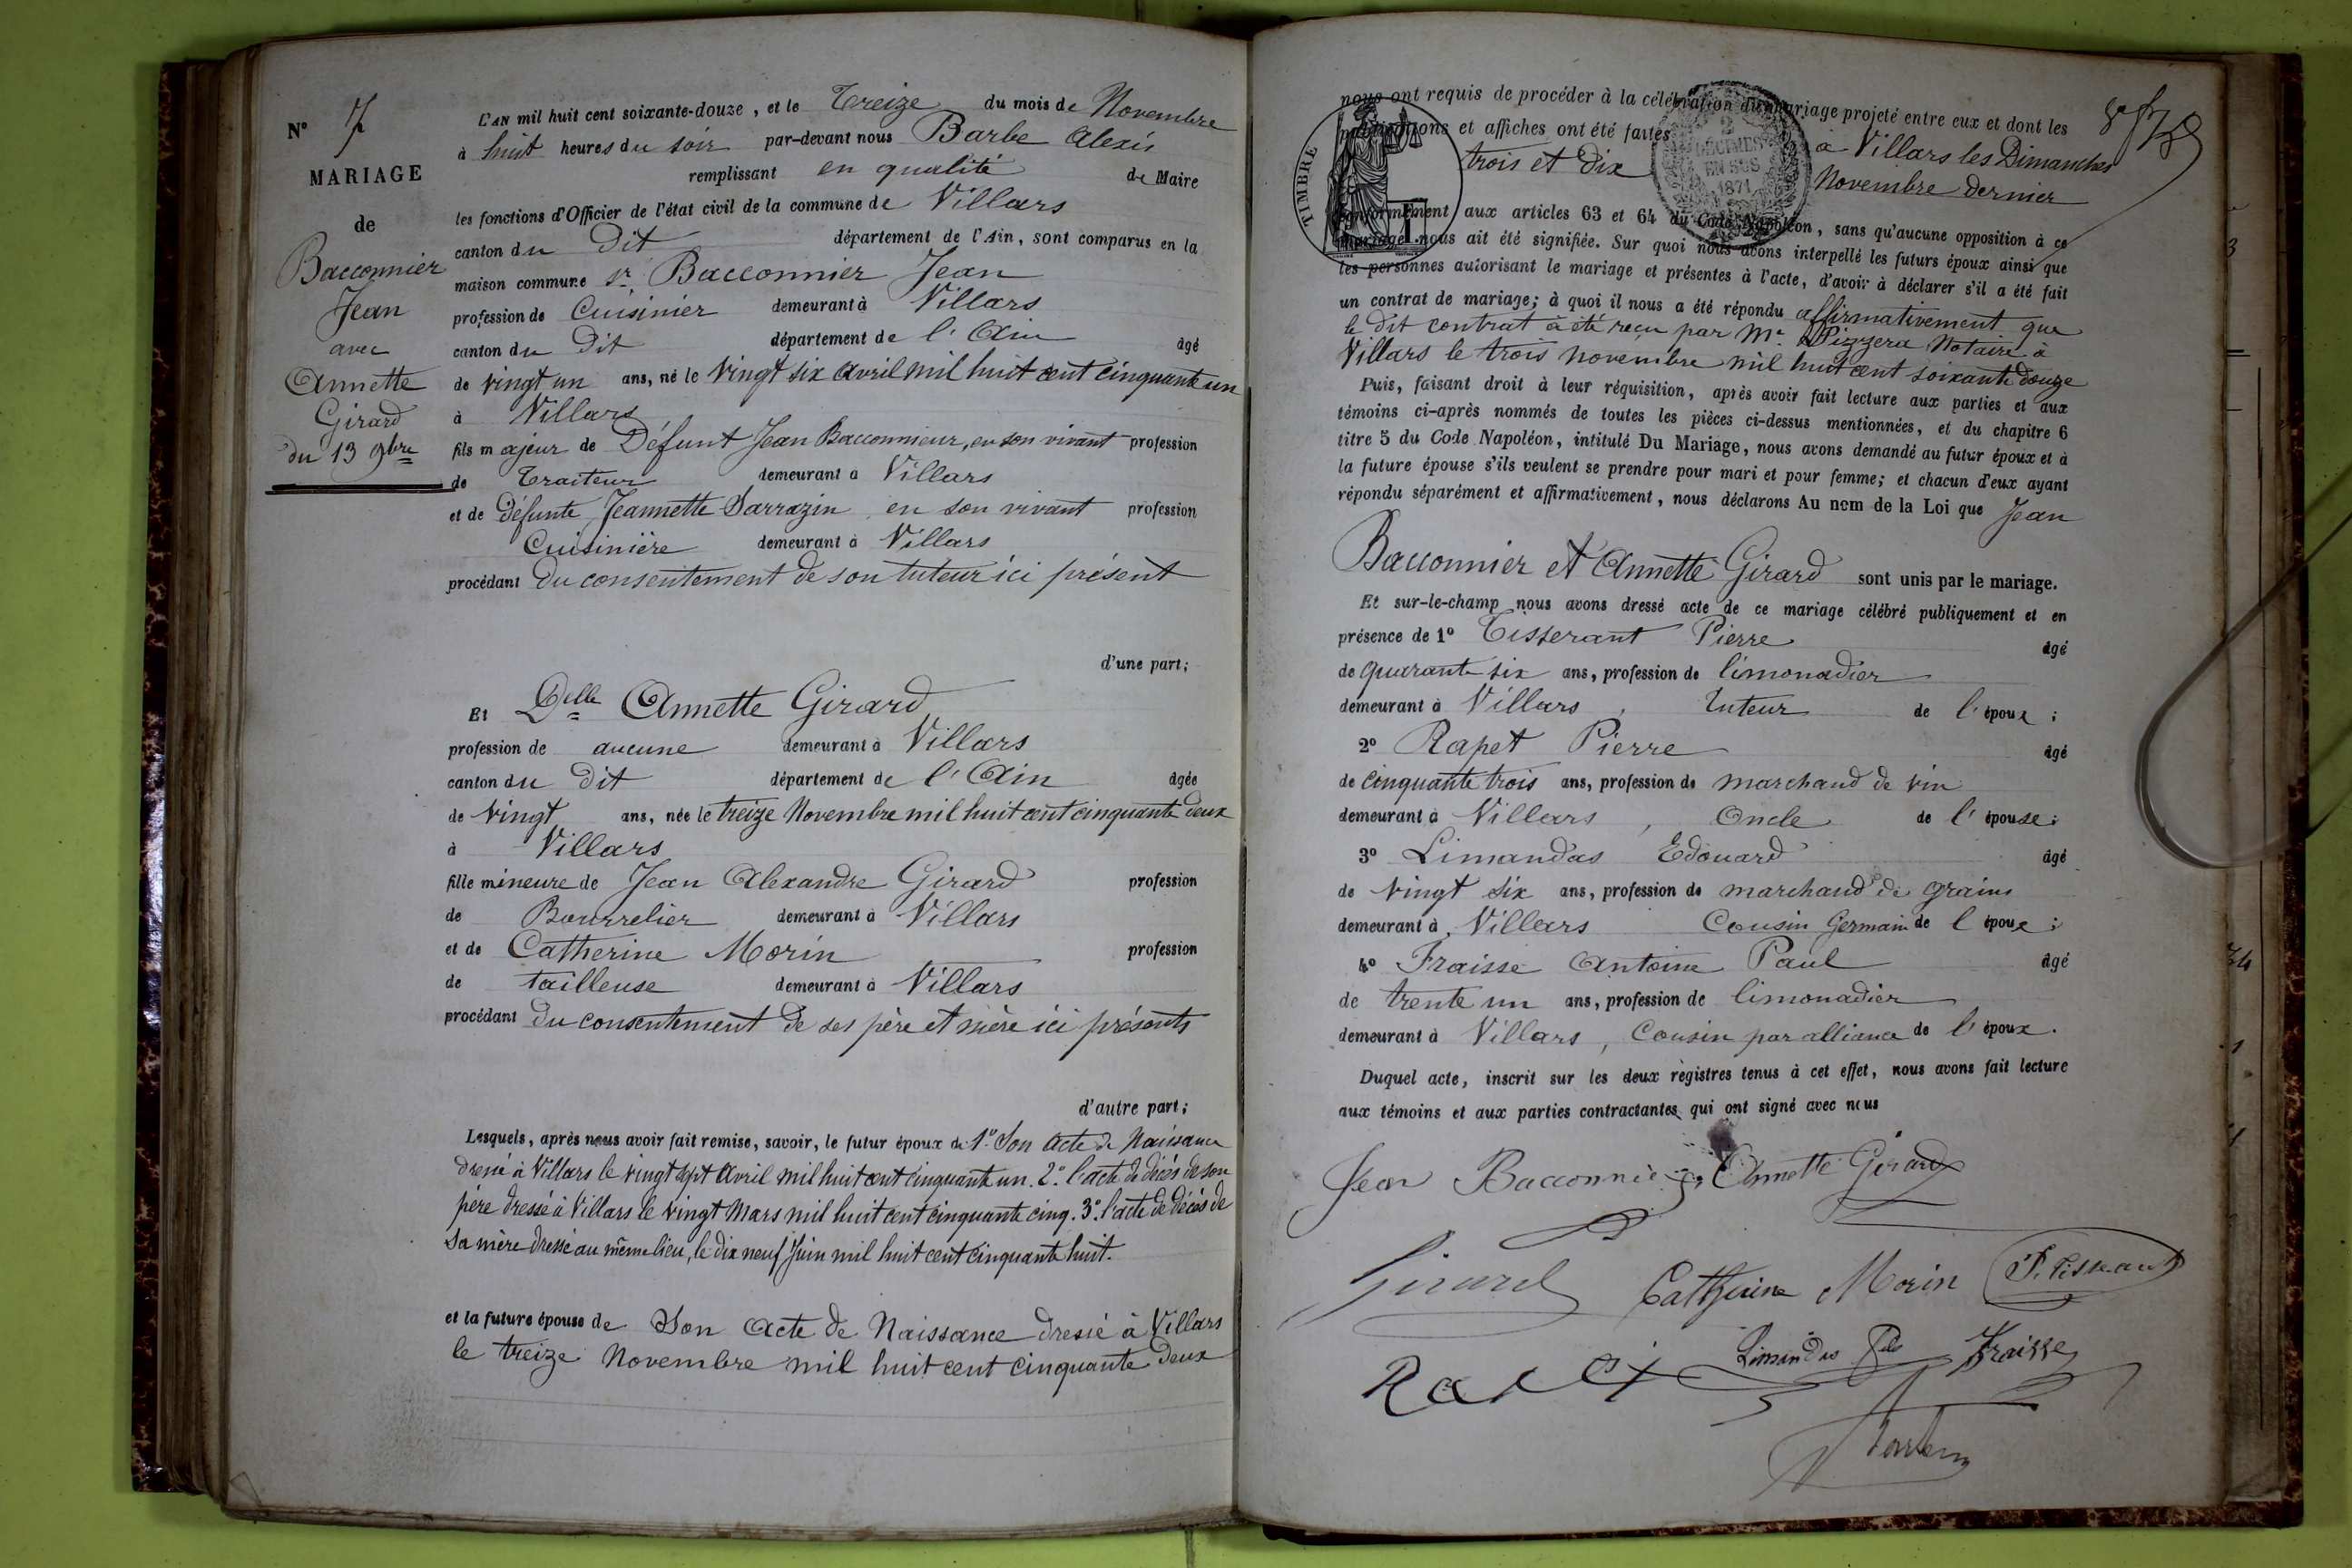 N° 7
MARIAGE
de
Bacconnier
Jean
avec
Annette
Girard
du 13 9bre
L'AN mil huit cent soixante-douze, et le Treize du mois de Novembre
à huit heures du soir par-devant nous Barbe Alexis
remplissant en qualité de Maire
les fonctions d'Officier de l'état civil de la commune de Villars
canton du Dit département de l'Ain, sont comparus en la
maison commune Sr. Bacconnier Jean
profession de Cuisinier demeurant à Villars
canton du Dit département de l'Ain âgé
de vingt un ans, né le Vingt six Avril mil huit cent cinquante un
à Villars
fils majeur de Défunt Jean Bacconnieur, en son vivant profession
de Traiteur demeurant à Villars
et de Défunte Jeannette Sarrazin en son vivant profession
Cuisinière demeurant à Villars
procédant Du consentement de son tuteur ici présent
d'une part;
Et Delle Annette Girard
profession de aucune demeurant à Villars
canton du Dit département de l'Ain âgée
de vingt ans, née le treize Novembre mil huit cent cinquante deux
à Villars
fille mineure de Jean Alexandre Girard profession
de Bourrelier demeurant à Villars
et de Catherine Morin profession
de tailleuse demeurant à Villars
procédant Du consentement de ses père et mère ici présents
d'autre part;
Lesquels, après nous avoir fait remise, savoir, le futur époux de 1° Son Acte de Naissance
dressé à Villars le vingt sept Avril mil huit cent cinquante un. 2° l'acte de décès de son
père dressé à Villars le vingt Mars mil huit cent cinquante cinq. 3° l'acte de décès de
Sa mère dressé au même lieu, le dix neuf Juin mil huit cent cinquante huit.
et la future épouse de Son Acte de Naissance dressé à Villars
le treize Novembre mil huit cent cinquante deux
nous ont requis de procéder à la célébration du mariage projeté entre eux et dont les
publications et affiches ont été faites à Villars les Dimanches
trois et Dix Novembre dernier
TIMBRE
2 DÉCIMES EN SUS 1871
conformément aux articles 63 et 64 du Code Napoléon, sans qu'aucune opposition à ce
mariage nous ait été signifiée. Sur quoi nous avons interpellé les futurs époux ainsi que
les personnes autorisant le mariage et présentes à l'acte, d'avoir à déclarer s'il a été fait
un contrat de mariage; à quoi il nous a été répondu affirmativement que
le dit contrat à été reçu par Me. Notaire à
Villars le trois novembre mil huit cent soixante douze
Puis, faisant droit à leur réquisition, après avoir fait lecture aux parties et aux
témoins ci-après nommés de toutes les pièces ci-dessus mentionnées, et du chapitre 6
titre 5 du Code Napoléon, intitulé Du Mariage, nous avons demandé au futur époux et à
la future épouse s'ils veulent se prendre pour mari et pour femme; et chacun d'eux ayant
répondu séparément et affirmativement, nous déclarons Au nom de la Loi que Jean
Bacconnier et Annette Girard sont unis par le mariage.
Et sur-le-champ nous avons dressé acte de ce mariage célébré publiquement et en
présence de 1° Tisserant Pierre âgé
de quarante six ans, profession de limonadier
demeurant à Villars, tuteur de l'époux;
2° Rapet Pierre âgé
de cinquante trois ans, profession de marchand de vin
demeurant à Villars, Oncle de l'épouse;
3° Limandas Edouard âgé
de vingt six ans, profession de marchand de grains
demeurant à Villars Cousin Germain de l époux;
4° Fraisse Antoine Paul âgé
de trente un ans, profession de limonadier
demeurant à Villars, Cousin par alliance de l'époux.
Duquel acte, inscrit sur les deux registres tenus à cet effet, nous avons fait lecture
aux témoins et aux parties contractantes qui ont signé avec nous
Jean Bacconnier Annette Girard
Girard Catherine Morin
Rapet Limandas fils Fraisse